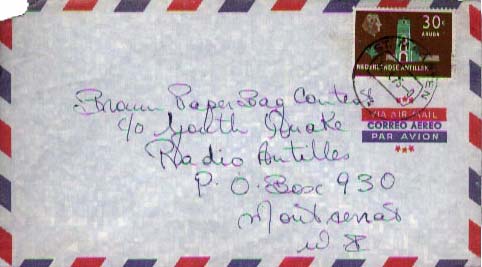 30c
ARUBA
NEDERLANDSE ANTILLEN
Brown Paper Bag Contest
c/o Youth Quake
Radio Antilles
P. O. Box 930
Montserrat
W I
VIA AIR MAIL
CORREO AEREO
PAR AVION